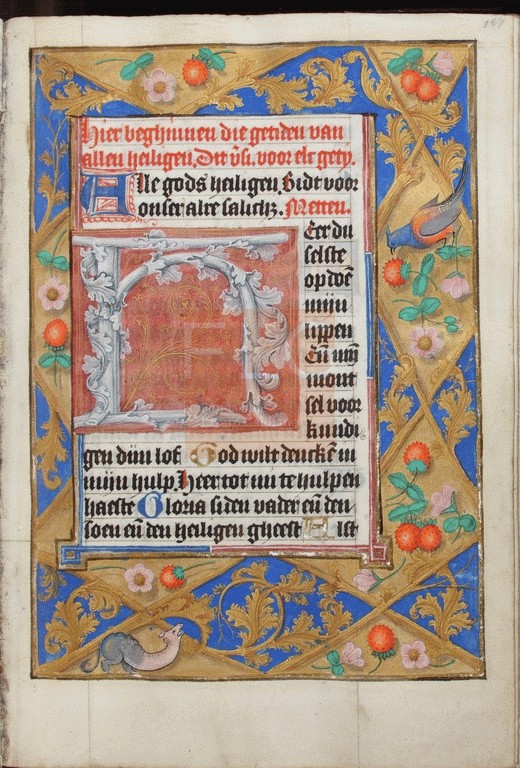 Hier beghinnen die getiden van
allen heiligen. Dit v̄s. voor elc gety.
Alle gods heiligen Bidt voor
onser alre salich3. Metten.
HEer du
selste
opdoē
mijn
lippen
Eñ mijn
mont
sel voor
kundi
gen dijn lof God wilt dencken in
mijn hulp, Heer tot mi te hulpen
haeste Gloria si den vader eñ den
soen eñ den heiligen gheest Alst